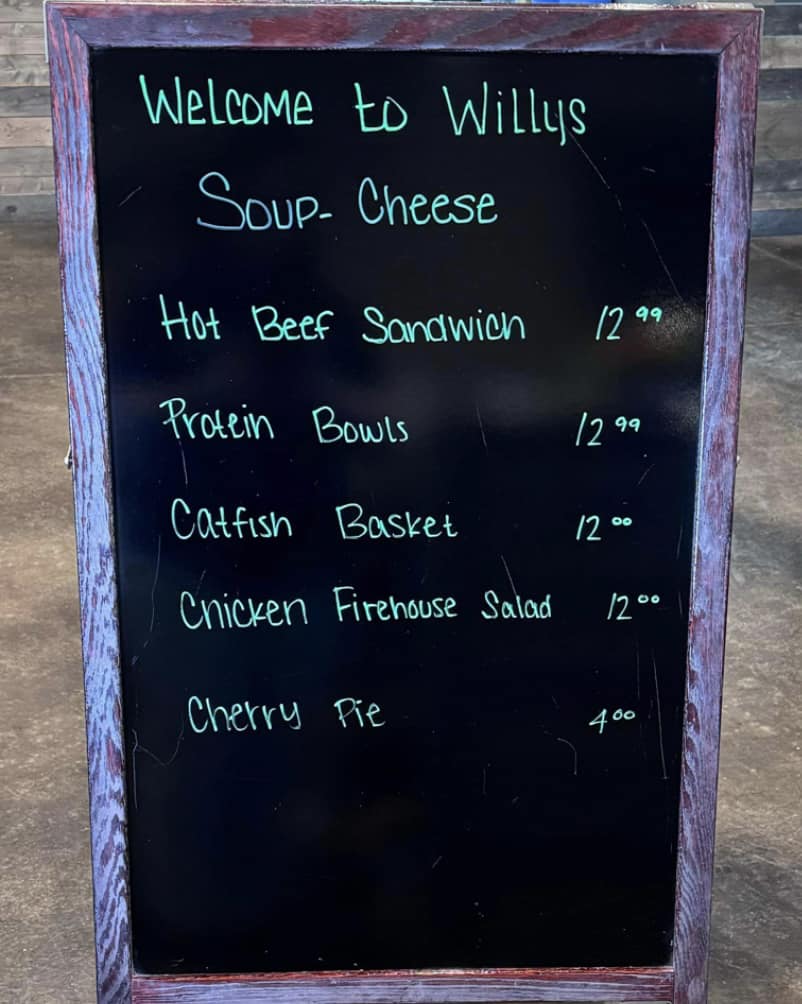 Welcome to Willys
Soup- Cheese
Hot Beef Sandwich 12 99
Protein Bowls 12 99
Catfish Basket 12 00
Chicken Firehouse Salad 12 00
Cherry Pie 4 00